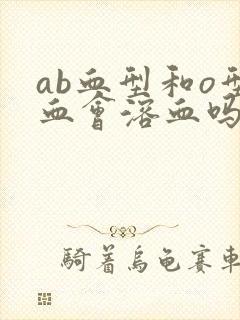 ab血型和o型
血會溶血吗
騎着烏龟赛車